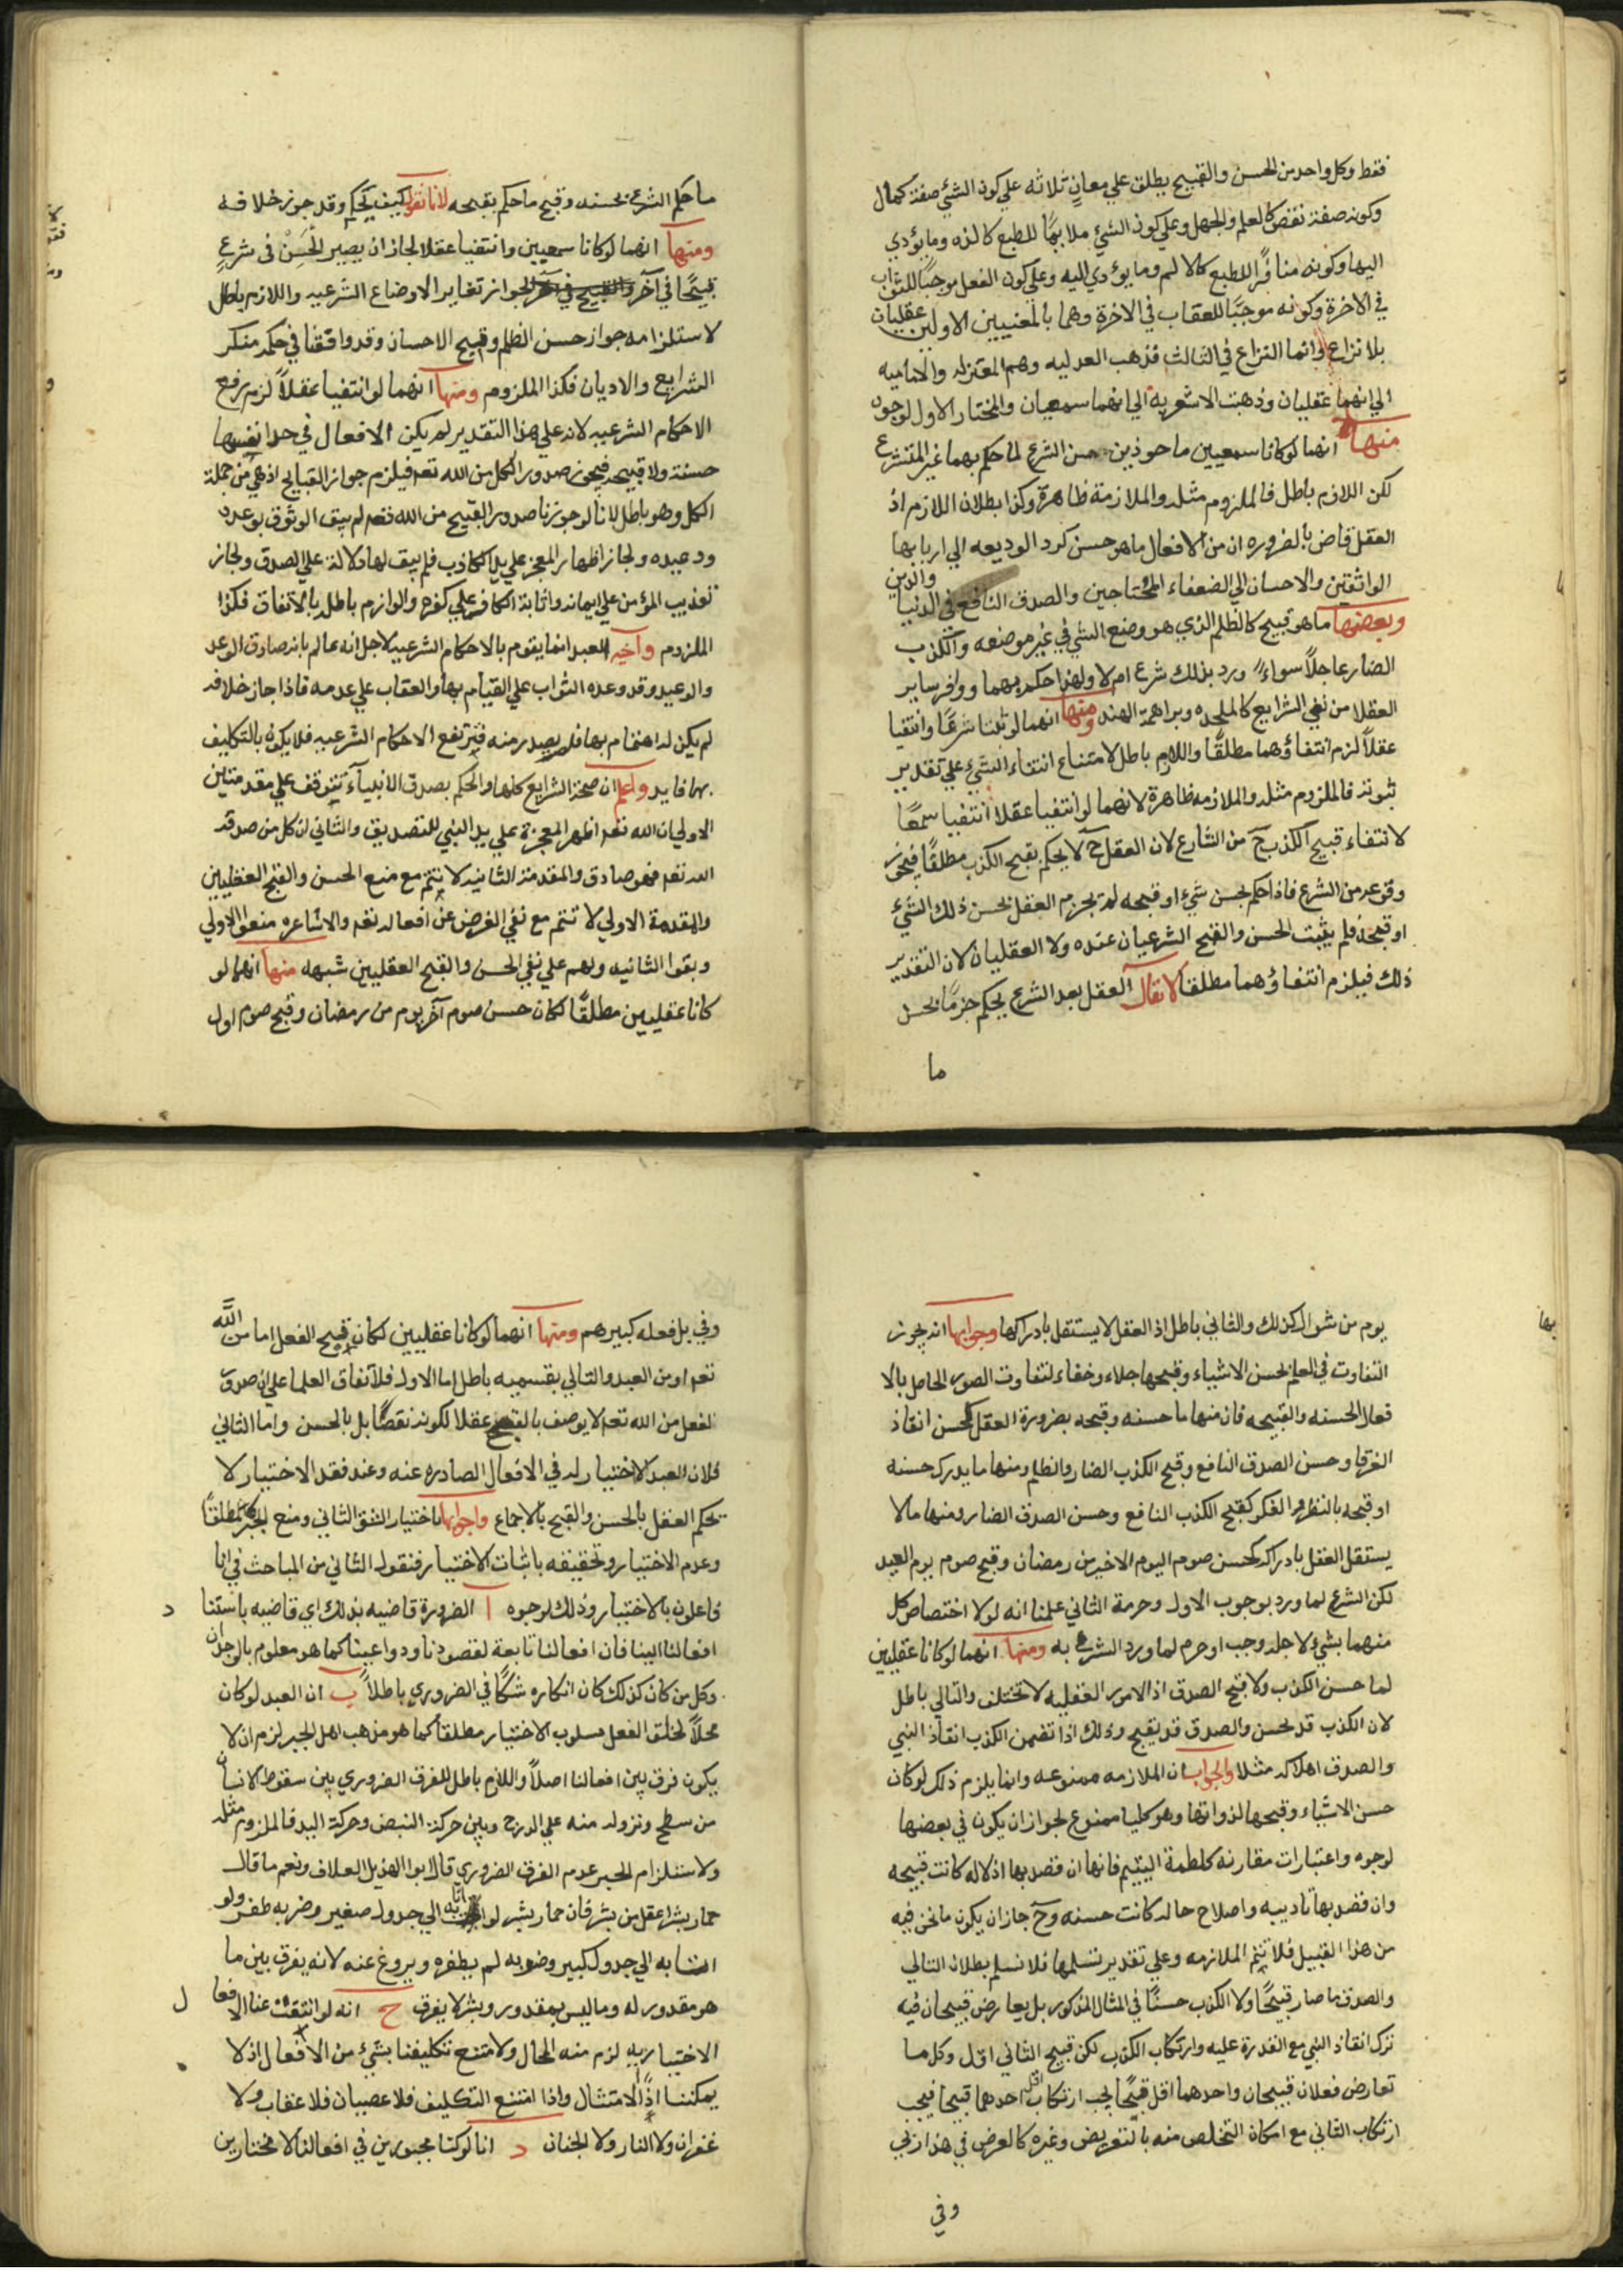 فقط وكل واحد من الحسن والقبيح يطلق علي معانٍ ثلاثه علي كون الشئ صفة كمال
وكونه صفة نقص كالعلم والجهل وعلي كون الشئ ملايمًا للطبع كالذه وما يؤدي
اليها وكونه منافرًا للطبع كالالم وما يؤدي اليه وعلي كون الفعل موجبًا للثواب
في الاخرة وكونه موجبًا للعقاب في الاخرة وهما بالمعنيين الاولين عقليان
بلا نزاع وانما النزاع في الثالث فذهب العدليه وهم المعتزله والاماميه
الي انهما عقليان وذهبت الاشعريه الي انهما سمعيان والمختار الاول لوجوه
منها انهما لو كانا سمعيين ماحوذين من الشرع لما حكم بهما غير المتشرع
لكن اللازم باطل فالملزوم مثله والملازمة ظاهرة وكذا بطلان اللازم اذ
العقل قاض بالضروره ان من الافعال ما هو حسن كرد الوديعه الي اربابها
الواثقين والاحسان الي الضعفاء المحتاجين والصدق النافع في الدنيا والدين
وبعضها ما هو قبيح كالظلم الذي هو وضع الشئ في غير موضعه والكذب
الضار عاجلاً سواء ورد بذلك شرع ام لا ولهذا حكم بهما ووافر ساير
العقلا من نفي الشرايع كالملحده وبراهمة الهند ومنها انهما لو ثبتا شرعًا وانتفيا
عقلاً لزم انتفاؤهما مطلقًا واللازم باطل لامتناع انتفاء الشئ علي تقدير
ثبوته فالملزوم مثله والملازمه ظاهرة لانهما لو انتفيا عقلا انتفيا سمعًا
لانتفاء قبيح الكذب ح من الشارع لان العقل ح لا يحكم بقبح الكذب مطلقًا فيجوز
وقوعه من الشرع فاذا حكم بحسن شئ او قبحه لم يجزم العقل بحسن ذلك الشئ
او قبحه فلم يثبت الحسن والقبح الشرعيان عنده ولا العقليان لان التقدير
ذلك فيلزم انتفاؤهما مطلقا لا يقال العقل بعد الشرع يحكم جزمًا بحسن
ما
ما حكم الشرع بحسنه وقبح ما حكم بقبحه لانا نقول كيف يحكم وقد جوز خلافه
ومنها انهما لو كانا سمعيين وانتفيا عقلا لجاز ان يصير الحسن في شرع
قبيحًا في آخر لجواز تغاير الاوضاع الشرعيه واللازم باطل
لاستلزامه جواز حسن الظلم وقبيح الاحسان وقد وافقنا في حكمه منكر
الشرايع والاديان فكذا الملزوم ومنها انهما لو انتفيا عقلاً لزم رفع
الاحكام الشرعيه لانه علي هذا التقدير لم يكن الافعال في حد انفسها
حسنة ولا قبيحه فيجوز صدور الكل من الله تعم فيلزم جواز القبايح اذ هي من جملة
الكل وهو باطل لانا لو جوزنا صدور القبيح من الله تعم لم يبق الوثوق بوعده
ووعيده ولجاز اظهار المعجز علي يد الكاذب فلم يبق لها دلالة علي الصدق ولجاز
تعذيب المؤمن علي ايمانه واثابة الكافر علي كفره واللوازم باطله بالاتفاق فكذا
الملزوم العبد انما يقوم بالاحكام الشرعيه لاجل انه عالم بانه صادق الوعد
والوعيد وقد وعده الثواب علي القيام بها والعقاب علي عدمه فاذا جاز خلافه
لم يكن له اهتمام بها فلم يصدر منه فترتفع الاحكام الشرعيه فلا يكون بالتكليف
بها فايده واعلم ان صحة الشرايع كلها والحكم بصدق الانبياء تتوقف علي مقدمتين
الاولي ان الله تعم اظهر المعجزة علي يد النبي للتصديق والثاني ان كل من صدقه
الله تعم فهو صادق والمقدمة الثانيه لا تتم مع منع الحسن والقبح العقليين
والمقدمة الاولي لا تتم مع نفي الغرض عن افعاله تعم والاشاعره منعوا الاولي
وبقوا الثانيه ولهم علي نفي الحسن والقبح العقليين شبهه منها انهما لو
كانا عقليين مطلقًا لكان حسن صوم آخر يوم من رمضان وقبح صوم اول
يوم من شوال كذلك والثاني باطل اذ العقل لا يستقل بادراكها وجوابها انه يجوز
التفاوت في العلم بحسن الاشياء وقبحها جلاء وخفاء لتفاوت الصور الحاصل بالا
فعال الحسنه والقبيحه فان منها ما حسنه وقبحه بضرورة العقل كحسن انقاذ
الغرقا وحسن الصدق النافع وقبح الكذب الضار والظلم ومنها ما يدرك حسنه
او قبحه بالنظر والفكر كقبح الكذب النافع وحسن الصدق الضار ومنها ما لا
يستقل العقل بادراكه كحسن صوم اليوم الاخير من رمضان وقبح صوم يوم العيد
لكن الشرع لما ورد بوجوب الاول وحرمة الثاني علمنا انه لولا اختصاص كل
منهما بشئ لاجله وجب او حرم لما ورد الشرع به ومنها انهما لو كانا عقليين
لما حسن الكذب ولا قبح الصدق اذ الامور العقليه لا تختلف والتالي باطل
لان الكذب قد يحسن والصدق قد يقبح وذلك اذا تضمن الكذب انقاذ النبي
والصدق اهلاكه مثلا والجواب ان الملازمه ممنوعه وانما يلزم ذلك لو كان
حسن الاشياء وقبحها لذواتها وهو كليا ممنوع لجواز ان يكون في بعضها
لوجوه واعتبارات مقارنه كلطمة اليتيم فانها ان قصد بها اذلاله كانت قبيحه
وان قصد بها تاديبه واصلاح حاله كانت حسنه وح جاز ان يكون ما نحن فيه
من هذا القبيل فلا تتم الملازمه وعلي تقدير تسلمها فلا نسلم بطلان التالي
والصدق ما صار قبيحًا ولا الكذب حسنًا في المثال المذكور بل يعارض قبيحان فيه
ترك انقاذ النبي مع القدرة عليه وارتكاب الكذب لكن قبيح الثاني اقل وكل ما
تعارض فعلان قبيحان واحدهما اقل قبحًا يجب ارتكاب اقل احدهما قبيحا فيجب
ارتكاب الثاني مع امكان التخلص منه بالتعريض وغيره كالعرض في هذا ربي
وفي
بها
وفي بل فعله كبيرهم ومنها انهما لو كانا عقليين لكان قبيح الفعل اما من الله
تعم او من العبد والتالي بقسميه باطل اما الاول فلاتفاق العلما علي ان صدق
الفعل من الله تعم لا يوصف بالقبح عقلا لكونه نقصًا بل بالحسن واما الثاني
فلان العبد لا اختيار له في الافعال الصادره عنه وعند فقد الاختيار لا
يحكم العقل بالحسن والقبح بالاجماع وجوابها باختيار الشق الثاني ومنع الجبر مطلقًا
وعدم الاختيار وتحقيقه باثبات الاختيار فنقول الثاني من المباحث في انا
فاعلون بالاختيار وذلك لوجوه ا الضرورة قاضيه بذلك اي قاضيه باستنا د
افعالنا الينا فان افعالنا تابعة لقصودنا ودواعينا كما هو معلوم بالوجدان
وكل من كان كذلك كان انكاره شكًا في الضروري باطلاً ب ان العبد لو كان
محلاً لخلق الفعل مسلوب الاختيار مطلقا كما هو مذهب اهل الجبر لزم ان لا
يكون فرق بين افعالنا اصلاً واللازم باطل للفرق الضروري بين سقوط الانسان
من سطح ونزوله منه علي الدرج وبين حركة النبض وحركة اليد فالملزوم مثله
ولاستلزام الجبر عدم الفرق الضروري قال ابوا الهذيل العلاف ونعم ما قال
حمار بشر اعقل من بشر فان حمار بشر لو اتا به الي جدول صغير وضربه طفر ولو
اتا به الي جدول كبير وضربه لم يطفره ويروغ عنه لانه يفرق بين ما
هو مقدور له وما ليس بمقدور وبشر لا يفرق ح انه لو انتفت عنا الافعا ل
الاختياريه لزم منه المحال ولامتنع تكليفنا بشئ من الافعال اذ لا
يمكننا اذًا الامتثال واذا امتنع التكليف فلا عصيان فلا عقاب ولا
غفران ولا النار ولا الجنان د انا لو كنا مجبورين في افعالنا لا مختارين